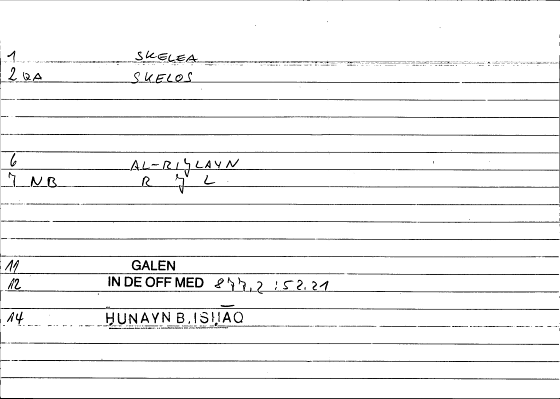 1 SKELEA
2 QA SKELOS
6 AL-RIǦLAYN
7 NB R Ǧ L
11 GALEN
12 IN DE OFF MED 877,2 : 52.21
14 ḤUNAYN B. ISḤĀQ